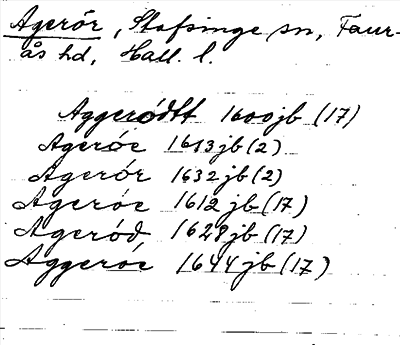 Agerör, Stafsinge sn, Faur-
ås hd, Hall. l.
Aggerödtt 1600 jb (17)
Ageröe 1613 jb (2)
Agerör 1632 jb (2)
Ageröe 1612 jb (17)
Ageröd 1628 jb (17)
Aggeröe 1644 jb (17)